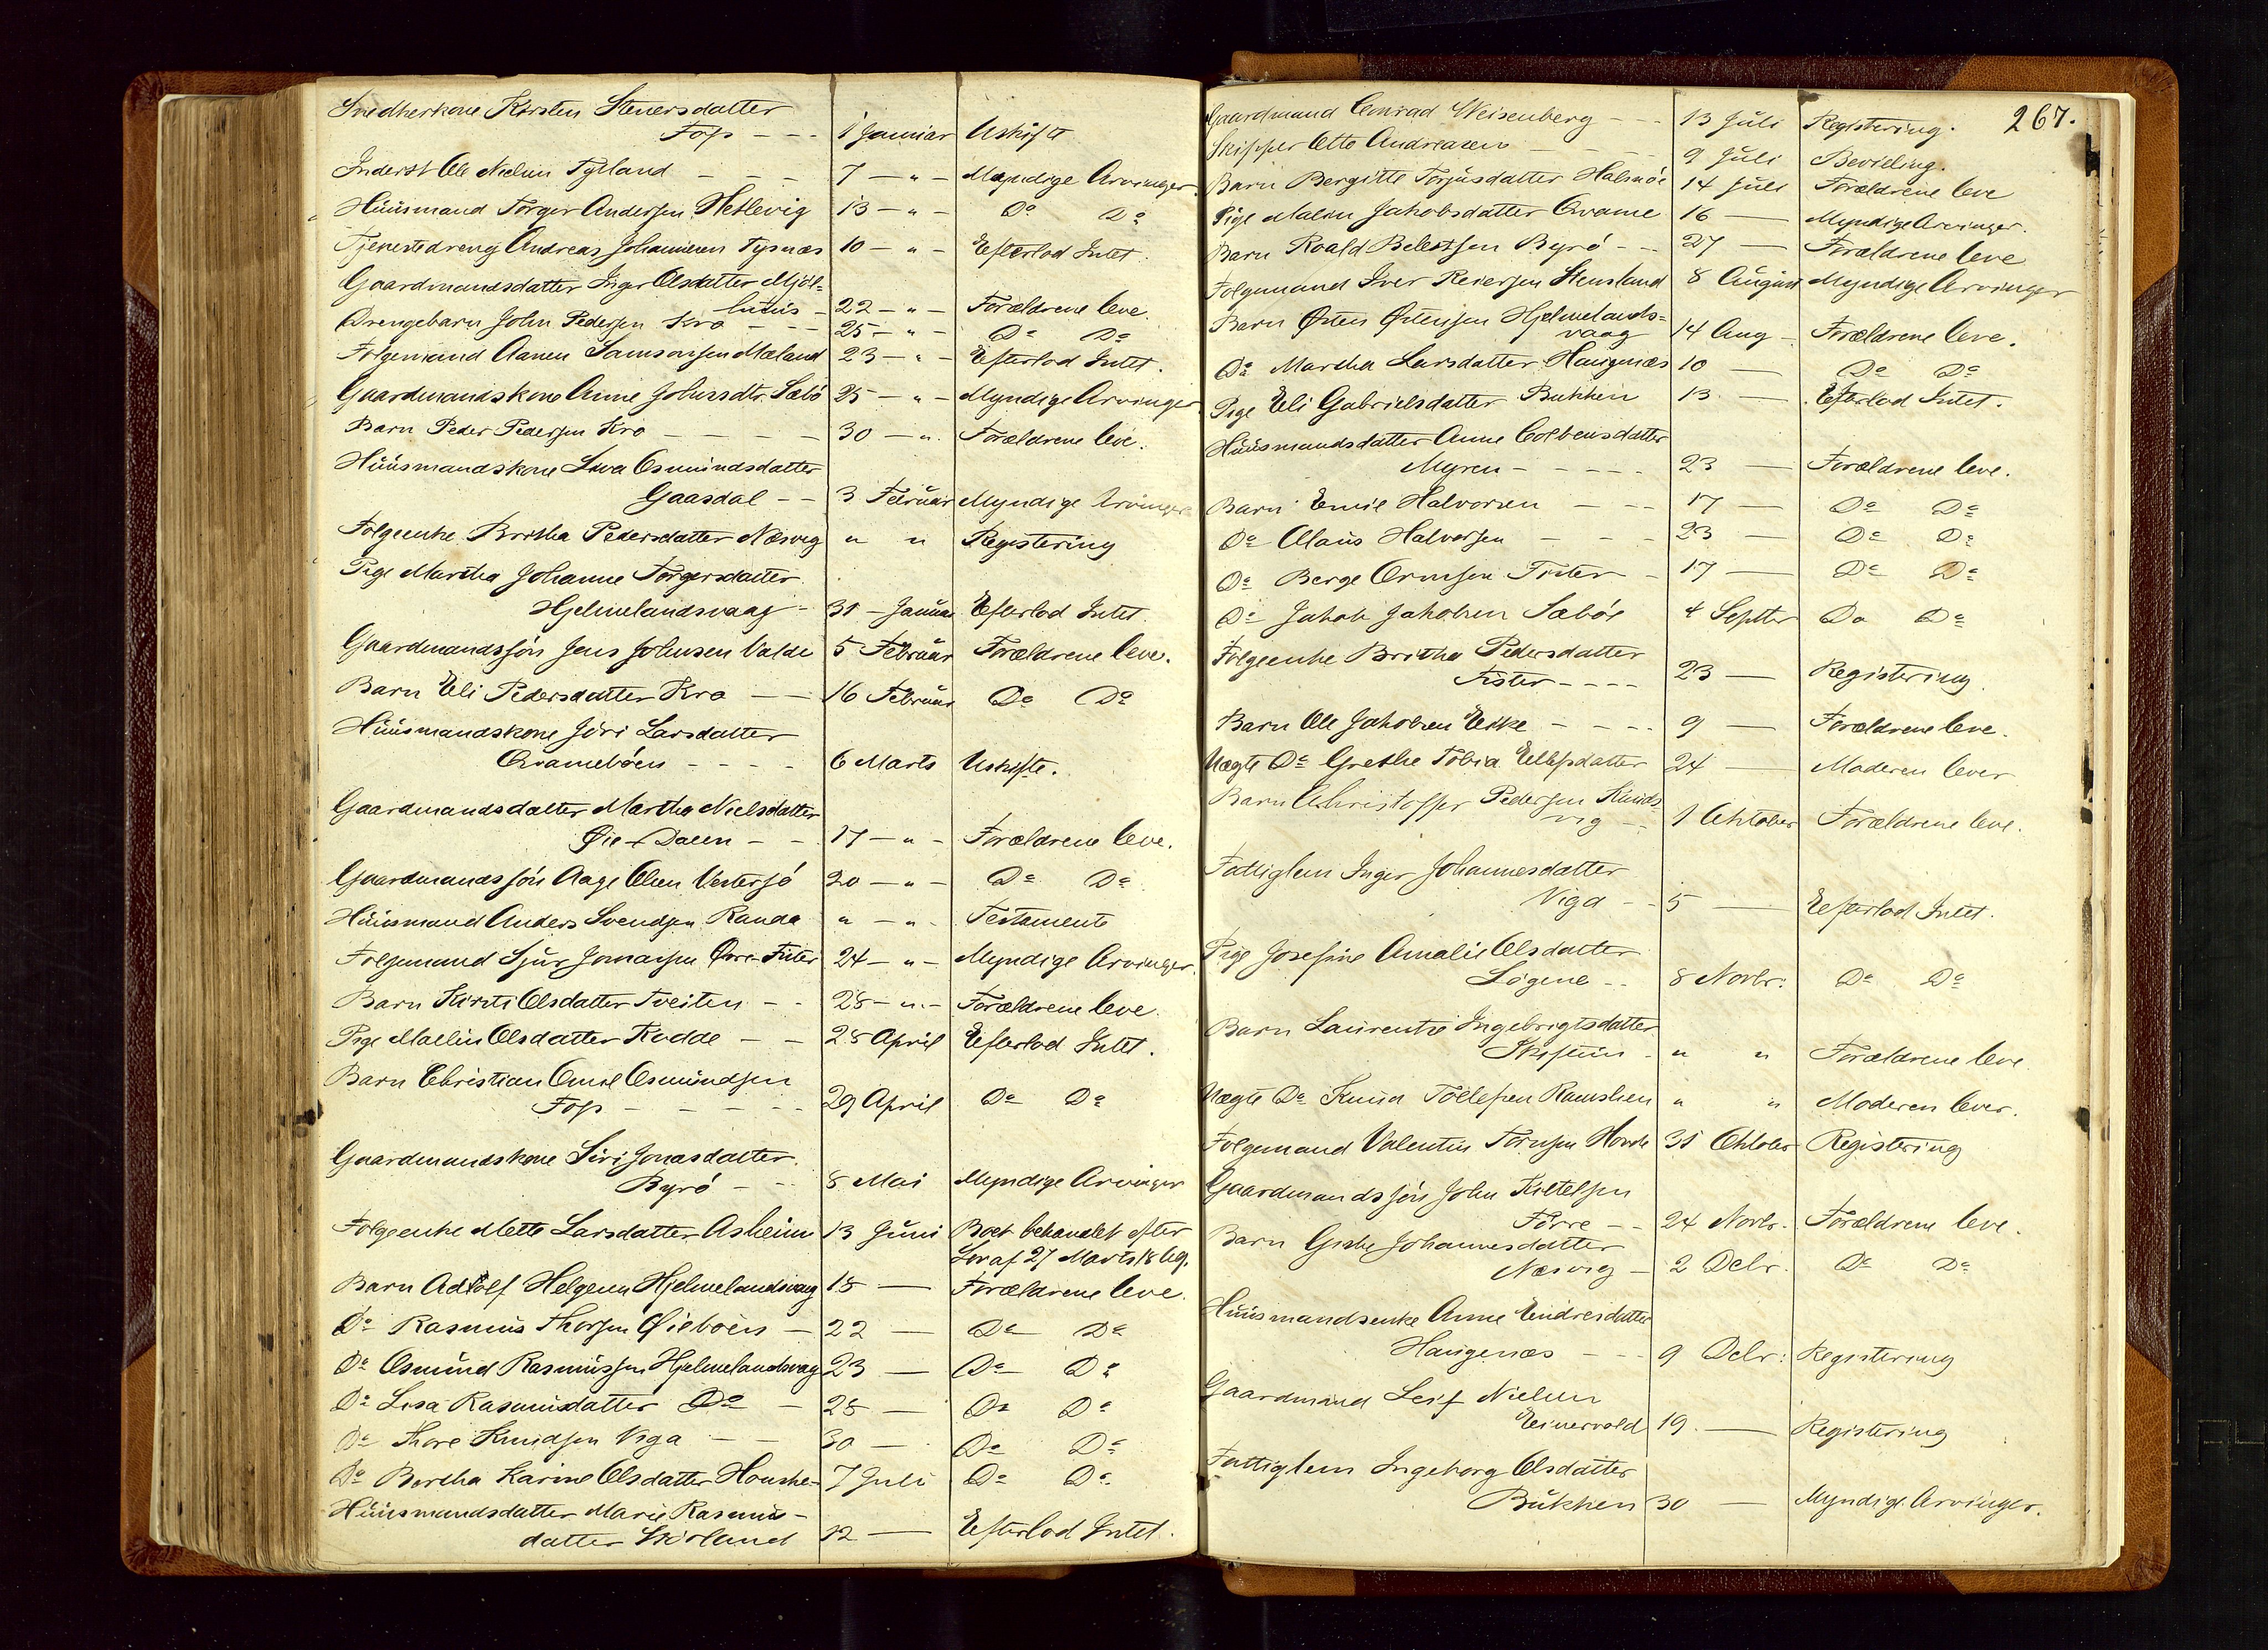 Snedkerkone Kirsten Stenersdatter
Fop - - - 1 Januar Uskifte
Inderst Ole Nielsen Tytland - - - 7 - " - Myndige Arvinger
Huusmand Torger Andersen Hetlevig 13 - " - Do Do
Tjenestedreng Andreas Johannesen Tysnæs 10 - " - Efterlod Intet.
Gaardmandsdatter Inger Olsdatter Mjöl-
huus - 22 - " - Forældrene leve.
Drengebarn John Pedersen Kro - - - 25 - " - Do Do
Folgemand Aanen Samsonsen Mæland 23 - " - Efterlod Intet.
Gaardmandskone Anne Johnsdtr. Sæbö 25 - " - Myndige Arvinger
Barn Peder Pedersen Kro - - - - 30 - " . Forældrene leve.
Huusmandskone Siva Osmundsdatter
Gaasdal - - 3 Februar Myndige Arvinger
Folgeenke Britha Pedersdatter Næsvig " " Registering
Pige Martha Johanne Torgersdatter
Hjelmelandsvaag - 31 - Januar Efterlod Intet
Gaardmandssön Jens Johnsen Valde 5 Februar Forældrene leve.
Barn Eli Pedersdatter Kro - - 16 Februar Do Do
Huusmandskone Jöri Larsdatter
Qvamebóen - - - - 6 Marts Uskifte.
Gaardmandsdatter Martha Nielsdatter
Öie - Dalen - - 17 - " - Forældrene leve.
Gaardmandssön Aage Olsen Vestersjó 20 - " - Do Do
Huusmand Anders Svendsen Randa " - " - Testamente
Folgemand Sjur Jonassen Övre-Fister 24 - " - Myndige Arvinger.
Barn Kirsti Olsdatter Tveiten - - 28 - " - Forældrene leve.
Pige Maelin Olsdatter Kodde - - 28 April Efterlod Intet.
Barn Christian Omel Osmundsen
Fop - - - - - 29 April Do Do
Gaardmandskone Siri Jonasdatter.
Byró - - 8 Mai Myndige Arvinger
Folgeenke Mette Larsdatter Asheim 13 Juni Boet behandlet efter
Lov af 27 Marts 1869.
Barn Adtolf Helgesen Hjelmelandsvaag 18 - Forældrene leve.
Do Rasmus Thorsen Öiebóen - 22 - Do Do
Do Osmund Rasmussen Hjelmelandsvaag 23 - Do Do
Do Lisa Rasmusdatter Do - 28 - Do Do
Do Thore Knudsen Viga - - 30 - Do Do
Do Bertha Karine Olsdatter Houske- 7 Juli Do Do
Huusmandsdatter Marie Rasmus-
datter Skirland 12 - Efterlod Intet.
267.
Gaardmand Conrad Weisenberg - - 13 Juli Registering.
Skipper Otto Andreasen - - - - 9 Juli Bevilling.
Barn Bergitte Torjusdatter Halsnöe 14 Juli Forældrene leve
Pige Malen Jakobsdatter Qvame 16 - Myndige Arvinger.
Barn Roald Belestsen Byró - - 27 - Forældrene leve
Folgemand Iver Reiersen Stensland 8 August Myndige Arvinger
Barn Östen Östensen Hjelmelands-
vaag 14 Aug - Forældrene leve.
Do Martha Larsdatter Haugenæs 10 - Do Do
Pige Eli Gabrielsdatter Bukken 13 - Efterlod Intet.
Huusmandsdatter Anne Colbensdatter
Myren - - - - - 23 - Forældrene leve.
Barn Emil Halvorsen - - - 17 - Do Do
Do Olaus Halvorsen - - - 23 - Do Do
Do Berge Ormsen Fister - 17 - Do Do
Do Jakob Jakobsen Sæbóe 4 Septter Do Do
Folgeenke Britha Pedersdatter
Fister - - - - 23 - Registering
Barn Ole Jakobsen Eike - - - - 9 - Forældrene leve.
Uægte Do Grethe Tobia Ellefsdatter 24 - Moderen lever
Barn Christoffer Pedersen Knuds-
vig - - 1 Oktober Forældrene leve.
Fattiglem Inger Johannesdatter
Viga - - 5 - Efterlod Intet.
Pige Josefine Amalie Olsdatter
Lógene - - 8 Novbr. Do Do
Barn Laurentze Ingebrigtsdatter
Skiftun - " " Forældrene leve
Uægte Do Knud Tollefsen Ramsken " " Moderen lever.
Folgemand Valentin Tornsen Hovde 31 Oktober Registering
Gaardmandssón John Kittelsen
Tórre - - 24 Novbr. Forældrene leve.
Barn Gjrthe Johannesdatter
Næsvig - 2 Debr. Do Do
Huusmandsenke Anne Endresdatter
Haugenæs - - - 9 Debr: Registering
Gaardmand Leif Nielsen
Einervold 19. - Registering
Fattiglem Ingeborg Olsdatter
Bukken 30 - Myndige Arvinger.